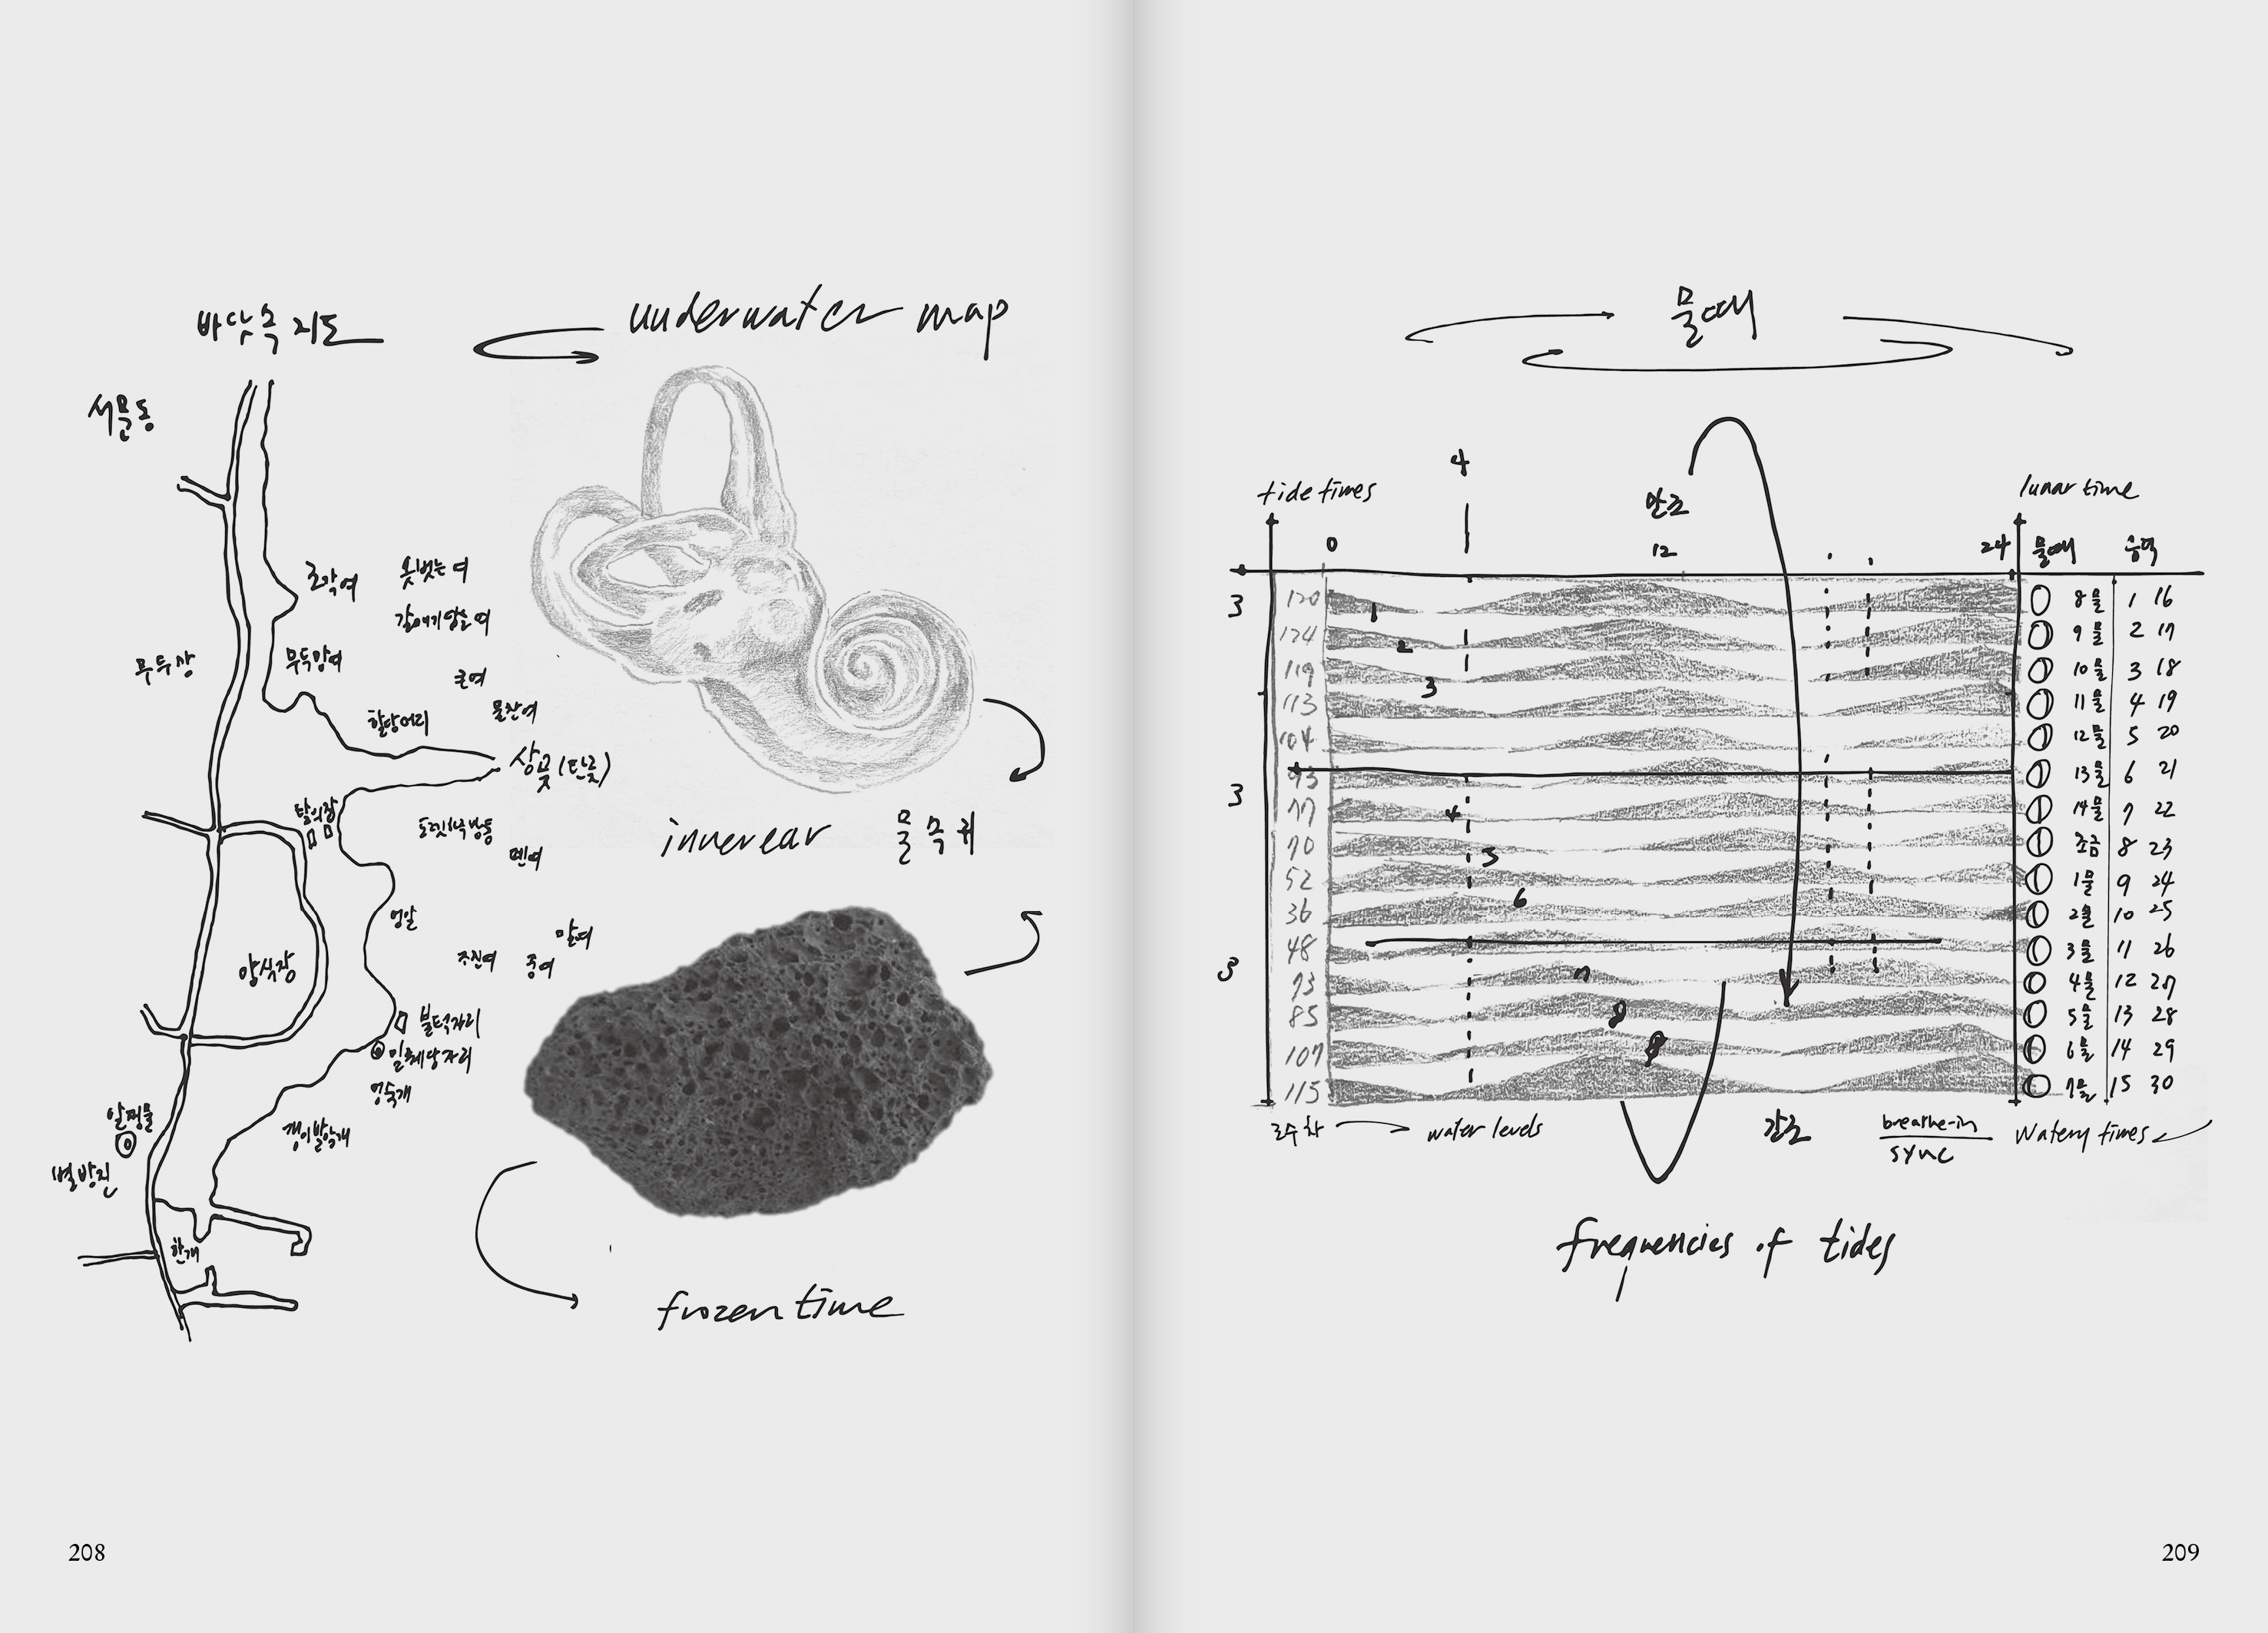 바닷속 지도
underwater map
서문동
조악여
옷벗는여
갈매기앉은여
무두망여
무두삼
큰여
물찬여
할당머리
상곶(탄곶)
탈의장
펜여
inner ear
물속귀
엉알
말여
조진여
중여
양식장
불턱자리
일뤠당자리
엉숙개
갱이밭알개
알쩻물
별방진
한개
frozen time
208
물때
4
tide times
만조
lunar time
0
12
24
물때
음력
3
120
1
8물 1 16
124
2
9물 2 17
119
3
10물 3 18
113
11물 4 19
104
12물 5 20
93
13물 6 21
3
77
4
14물 7 22
70
5
조금 8 23
52
1물 9 24
36
6
2물 10 25
48
3물 11 26
3
73
7
4물 12 27
85
8
5물 13 28
107
9
6물 14 29
115
7물 15 30
조수차
water levels
간조
breathe-in
sync
watery times
frequencies of tides
209